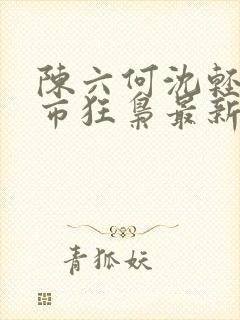 陳六何沈軽
市狂梟最新
青狐妖